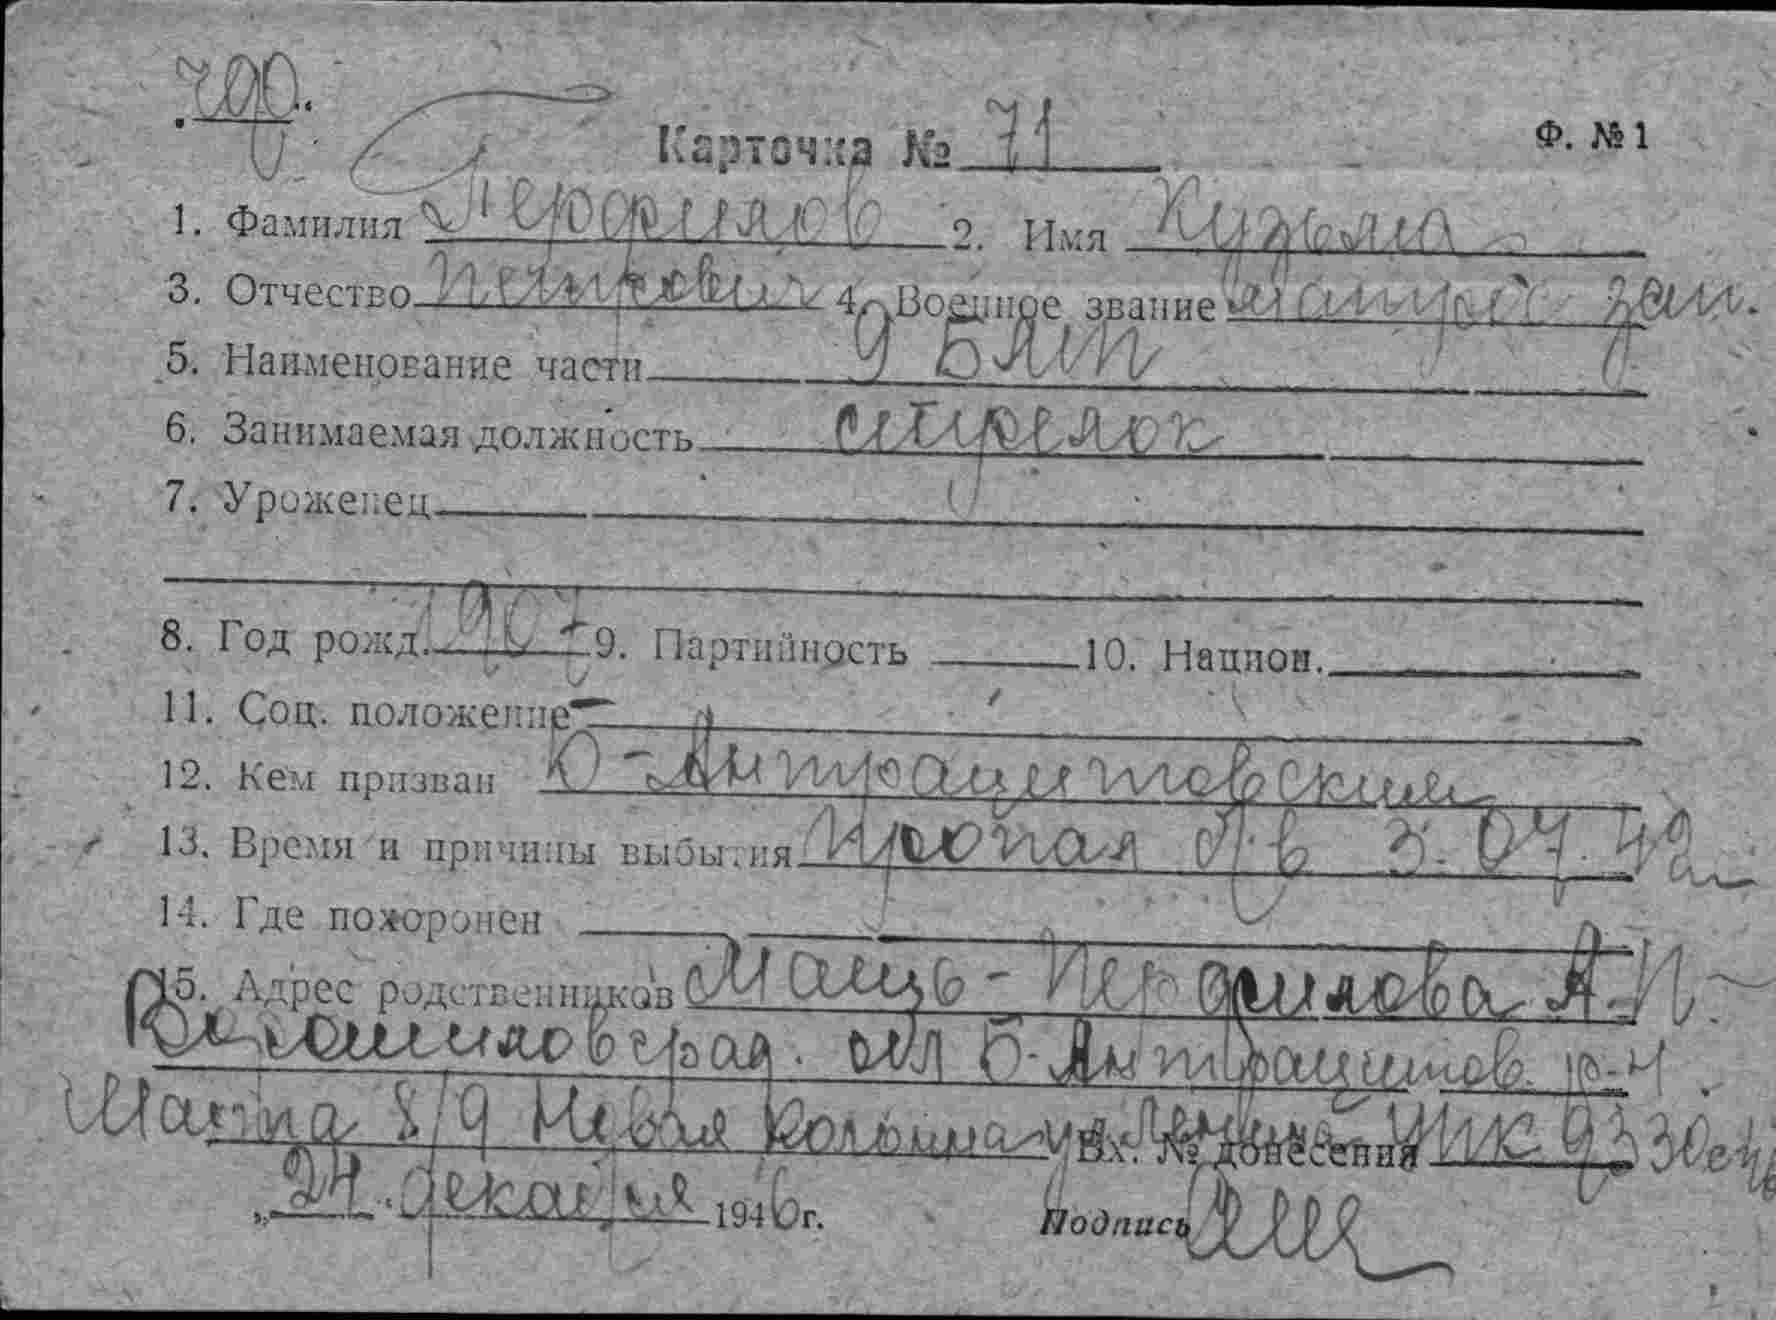 700
Карточка № 71 Ф. № 1
1. Фамилия Перфилов 2. Имя Кузьма
3. Отчество Петрович 4. Военное звание матрос зап.
5. Наименование части 9 Б МП
6. Занимаемая должность стрелок
7. Уроженец
8. Год рожд. 1907 9. Партийность 10. Национ.
11. Соц. положение
12. Кем призван Б-Антрацитовским
13. Время и причины выбытия Пропал 3.07.42
14. Где похоронен
15. Адрес родственников Мать - Перфилова А.И
Ворошиловград. обл Б-Антрацитов. р-н
Шахта 8/9 Новая Колония Вх. № донесения 9330
„24" декабря 1946 г. Подпись